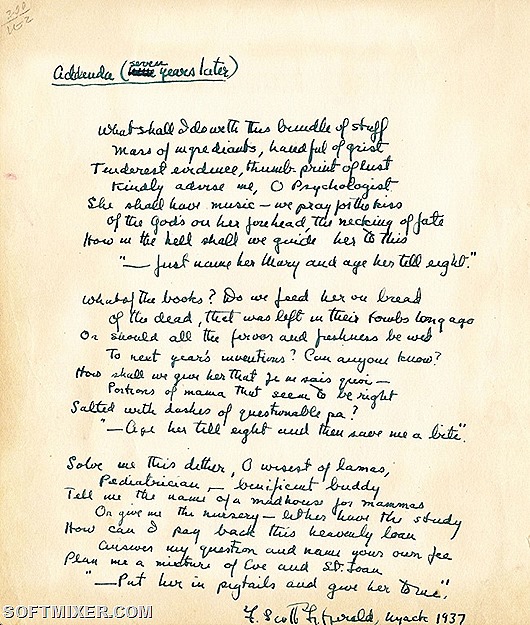 Addenda (seven years later)
What shall I do with this bundle of stuff
Mass of ingredients, handful of grist
Tenderest evidence, thumb print of lust
Kindly advise me, O Psychologist
She shall have music — we pray for the kiss
Of the Gods on her forehead, the necking of fate
How in the hell shall we guide her to this
"— Just name her Mary and age her till eight."
What of the books? Do we feed her on bread
Of the dead, that was left in their tombs long ago
Or should all the fervor and freshness be wed
To next year's inventions? Can anyone know?
How shall we give her that je ne sais quoi —
Portions of mama that seem to be right
Salted with dashes of questionable pa?
"— Age her till eight and then save me a bite".
Solve me this dither, O wisest of lamas,
Pediatrician — benificent buddy
Tell me the name of a madhouse for mammas
Or give me the nursery — let her have the study
How can I pay back this heavenly loan
Answer my question and name your own fee
Plan me a mixture of Eve and St. Joan
"— Put her in pigtails and give her to me".
F. Scott Fitzgerald, Nyack 1937
SOFTMIXER.COM